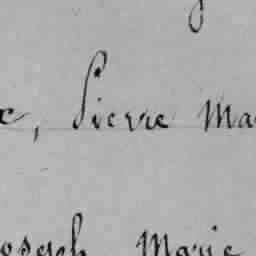 c, Pierre Ma
oseph Marie